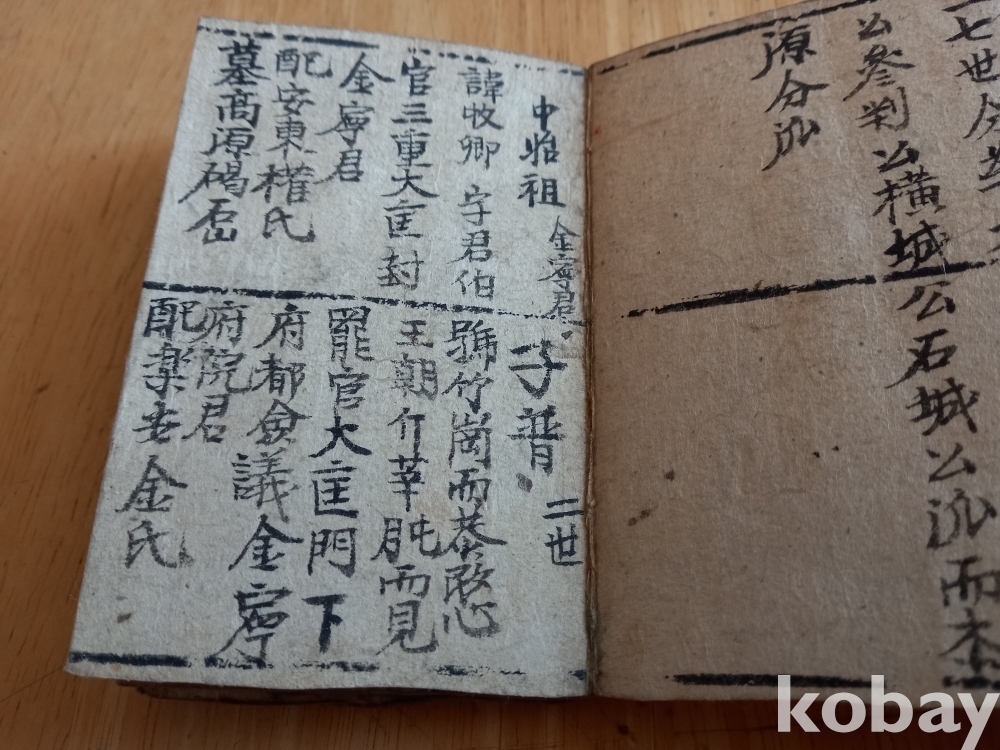 七世分
公參判公橫城
公石城公派而
源分派
中始祖 金寧君
諱牧卿 字君伯
官三重大匡封
金寧君
配安東權氏
墓高源碣
子普 二世
號竹崗而恭
王朝
而見
罷官大匡門下
府都僉議金寧
府院君
配樂安金氏
kobay